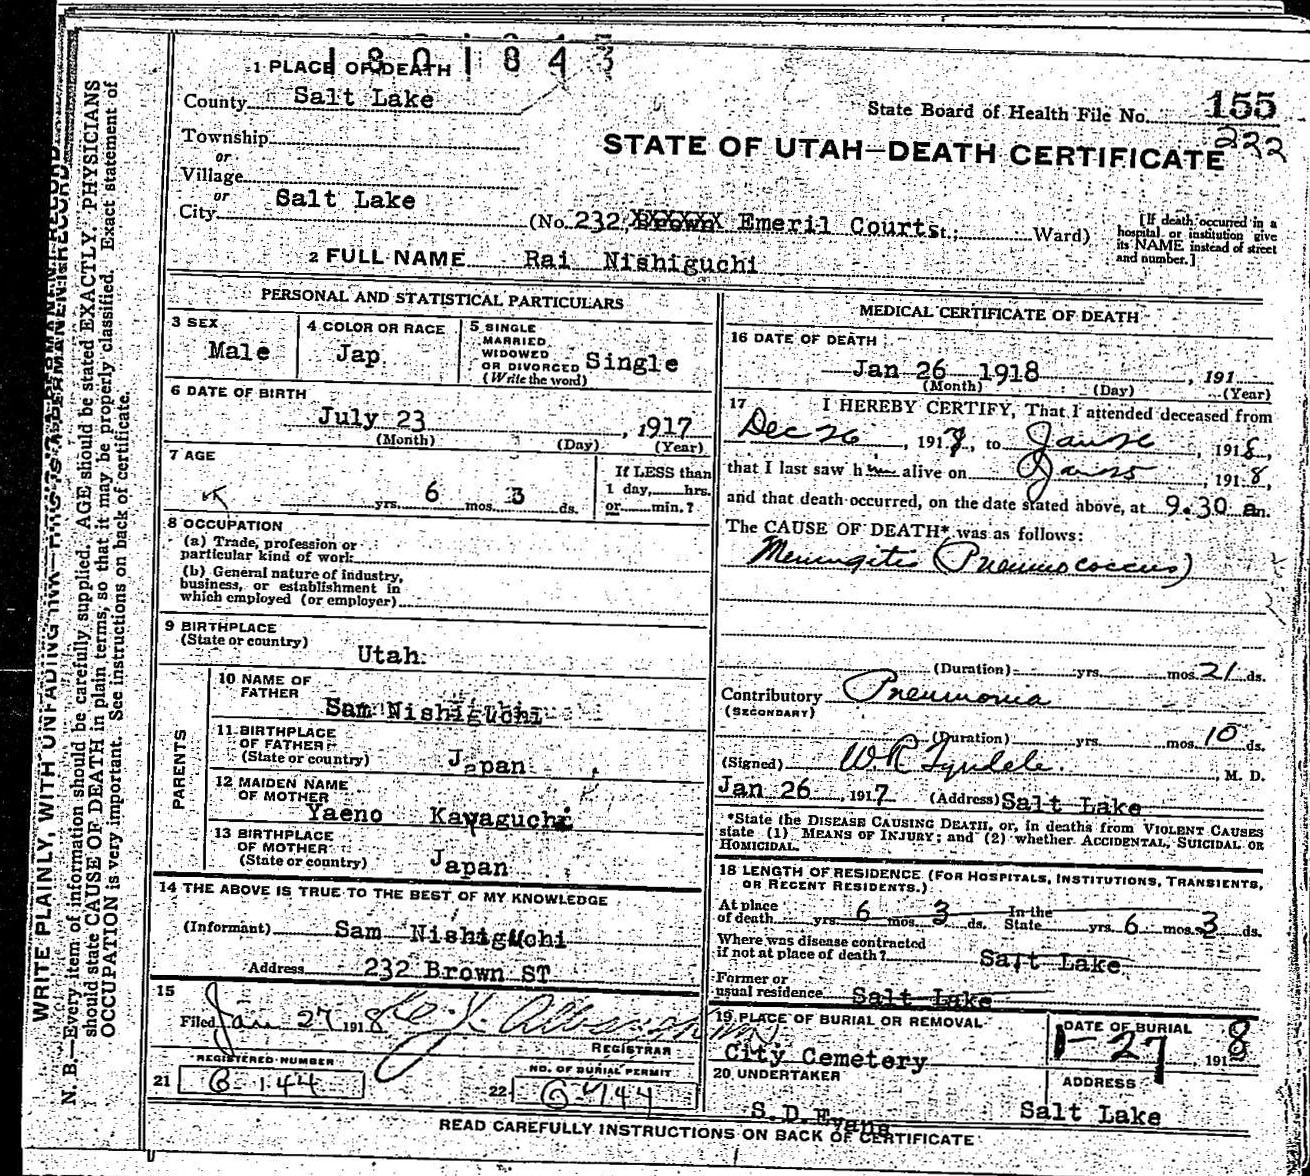 1801843
1 PLACE OF DEATH
County Salt Lake
State Board of Health File No. 155
232
Township
or
Village
or
City Salt Lake
STATE OF UTAH—DEATH CERTIFICATE
(No. 232 Brown XXXXXX Emeril Court St.; Ward)
[If death occurred in a
hospital or institution give
its NAME instead of street
and number.]
2 FULL NAME Rai Nishiguchi
PERSONAL AND STATISTICAL PARTICULARS
3 SEX
Male
4 COLOR OR RACE
Jap
5 SINGLE
MARRIED
WIDOWED
OR DIVORCED
(Write the word)
Single
6 DATE OF BIRTH
July 23, 1917
(Month) (Day) (Year)
7 AGE
yrs. 6 mos. 3 ds.
If LESS than
1 day, hrs.
or min.?
8 OCCUPATION
(a) Trade, profession or
particular kind of work
(b) General nature of industry,
business, or establishment in
which employed (or employer)
9 BIRTHPLACE
(State or country)
Utah
PARENTS
10 NAME OF
FATHER
Sam Nishiguchi
11 BIRTHPLACE
OF FATHER
(State or country)
Japan
12 MAIDEN NAME
OF MOTHER
Yaeno Kawaguchi
13 BIRTHPLACE
OF MOTHER
(State or country)
Japan
14 THE ABOVE IS TRUE TO THE BEST OF MY KNOWLEDGE
(Informant) Sam Nishiguchi
Address 232 Brown ST
15
Filed Jan 27 1918
REGISTRAR
REGISTERED NUMBER
21 G 144
NO. OF BURIAL PERMIT
22 G 144
MEDICAL CERTIFICATE OF DEATH
16 DATE OF DEATH
Jan 26 1918, 191
(Month) (Day) (Year)
17 I HEREBY CERTIFY, That I attended deceased from
Dec 26, 191, to Jan 26, 1918,
that I last saw h alive on Jan 25, 1918,
and that death occurred, on the date stated above, at 9.30 a m.
The CAUSE OF DEATH* was as follows:
Meningitis (Pneumococcus)
(Duration) yrs. mos. 21 ds.
Contributory Pneumonia
(SECONDARY)
(Duration) yrs. mos. 10 ds.
(Signed) W.R. Tyndale, M. D.
Jan 26, 1917 (Address) Salt Lake
*State the DISEASE CAUSING DEATH, or, in deaths from VIOLENT CAUSES
state (1) MEANS OF INJURY; and (2) whether ACCIDENTAL, SUICIDAL OR
HOMICIDAL.
18 LENGTH OF RESIDENCE (FOR HOSPITALS, INSTITUTIONS, TRANSIENTS,
OR RECENT RESIDENTS.)
At place
of death yrs. 6 mos. 3 ds. In the
State yrs. 6 mos. 3 ds.
Where was disease contracted
if not at place of death? Salt Lake
Former or
usual residence Salt Lake
19 PLACE OF BURIAL OR REMOVAL
City Cemetery
DATE OF BURIAL
1-27 1918
20 UNDERTAKER
S.D. Evans
ADDRESS
Salt Lake
READ CAREFULLY INSTRUCTIONS ON BACK OF CERTIFICATE
N. B.—Every item of information should be carefully supplied. AGE should be stated EXACTLY. PHYSICIANS
should state CAUSE OF DEATH in plain terms, so that it may be properly classified. Exact statement of
OCCUPATION is very important. See instructions on back of certificate.
WRITE PLAINLY, WITH UNFADING INK—THIS IS A PERMANENT RECORD.